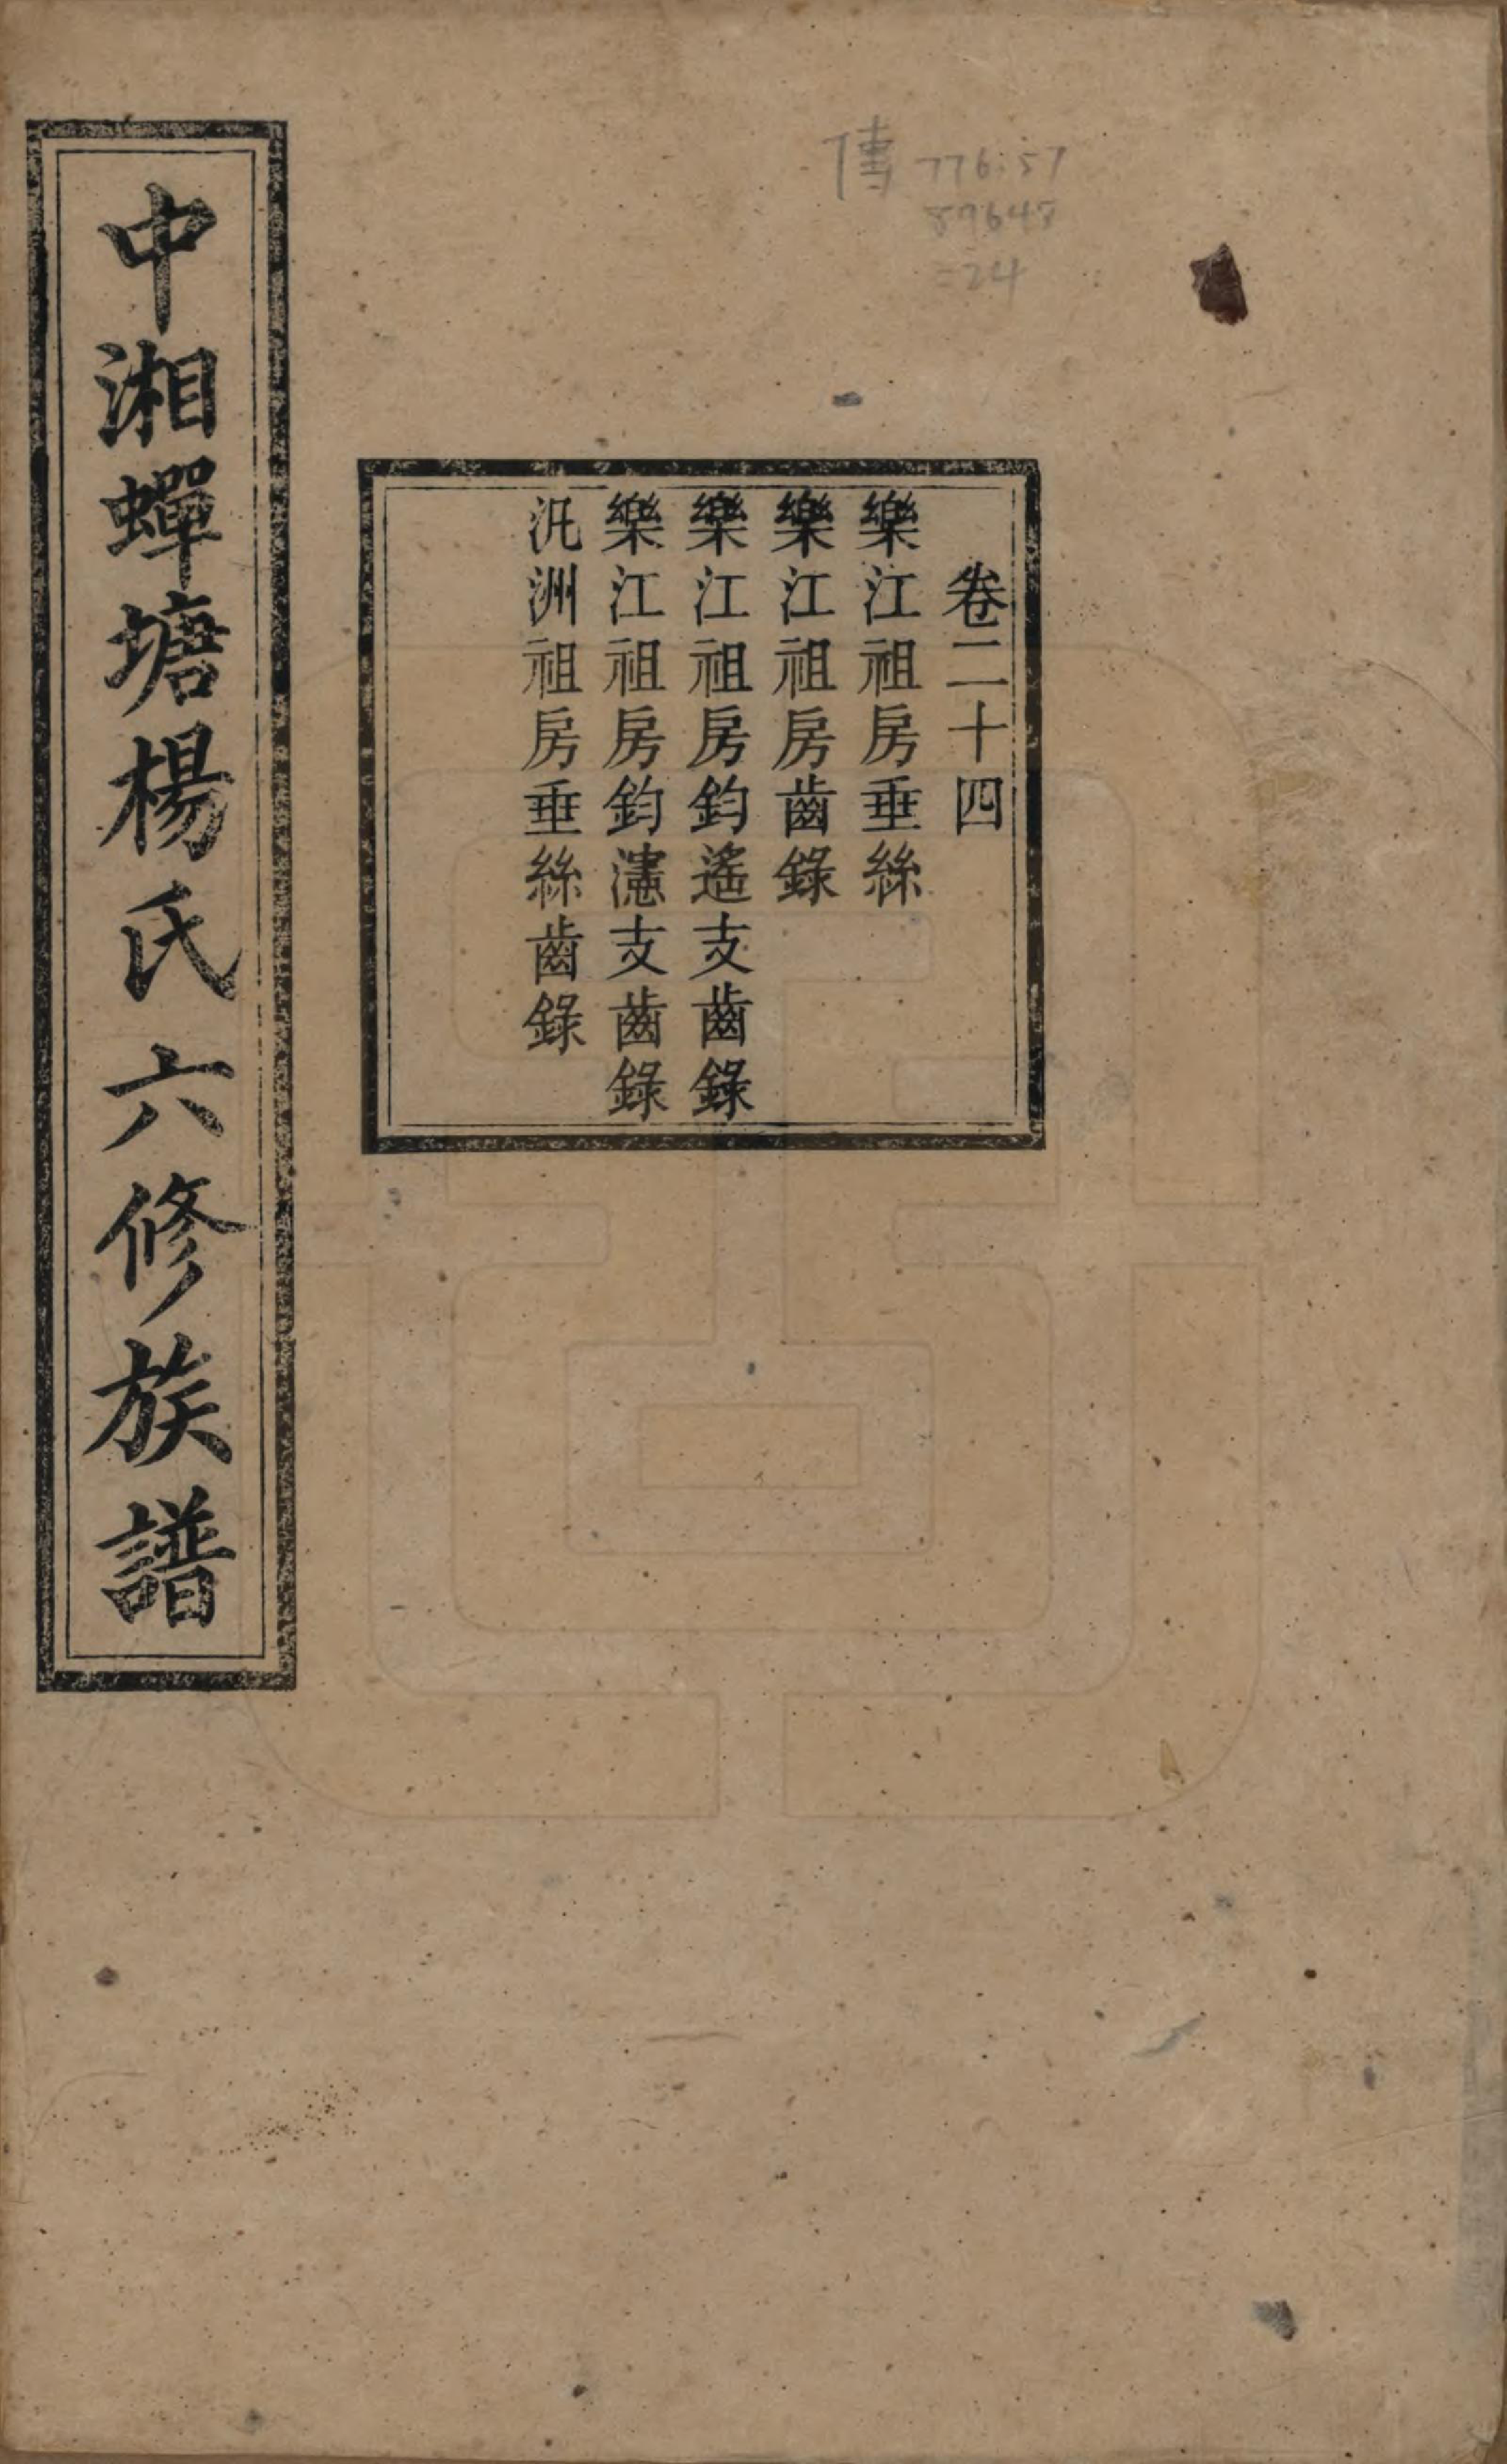 傳 776.57
89648
=24
卷二十四
樂江祖房垂絲
樂江祖房齒錄
樂江祖房鈞遙支齒錄
樂江祖房鈞瀗支齒錄
汑洲祖房垂絲齒錄
中湘蟬塘楊氏六修族譜